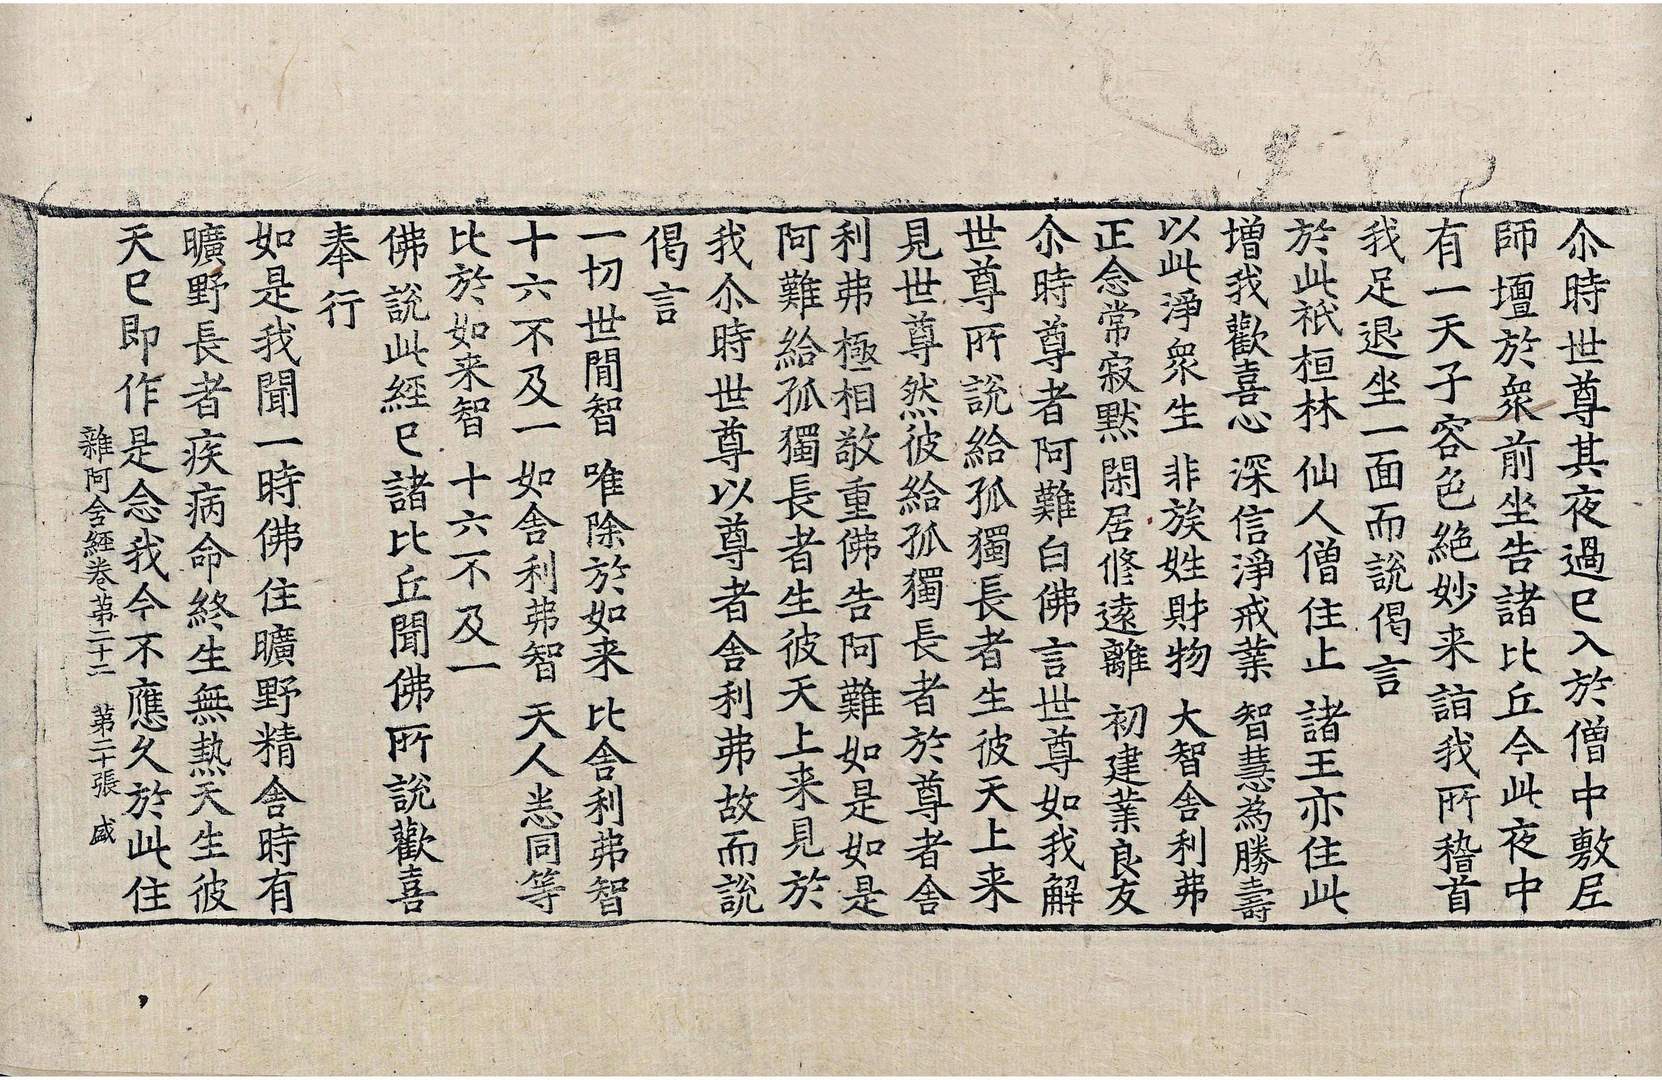 尒時世尊其夜過已入於僧中敷𡱈
師壇於衆前坐告諸比丘今此夜中
有一天子容色絶妙来詣我所稽首
我足退坐一面而說偈言
於此祇桓林 仙人僧住止 諸王亦住此
增我歡喜心 深信淨戒業 智慧為勝壽
以此淨衆生 非族姓財物 大智舍利弗
正念常寂默 閑居修遠離 初建業良友
尒時尊者阿難白佛言世尊如我解
世尊所說給孤獨長者生彼天上来
見世尊然彼給孤獨長者於尊者舍
利弗極相敬重佛告阿難如是如是
阿難給孤獨長者生彼天上来見於
我尒時世尊以尊者舍利弗故而說
偈言
一切世間智 唯除於如来 比舍利弗智
十六不及一 如舍利弗智 天人悉同等
比於如来智 十六不及一
佛說此經已諸比丘聞佛所說歡喜
奉行
如是我聞一時佛住曠野精舍時有
曠野長者疾病命終生無熱天生彼
天已即作是念我今不應久於此住
雜阿含經卷苐二十二 苐二十張 盛